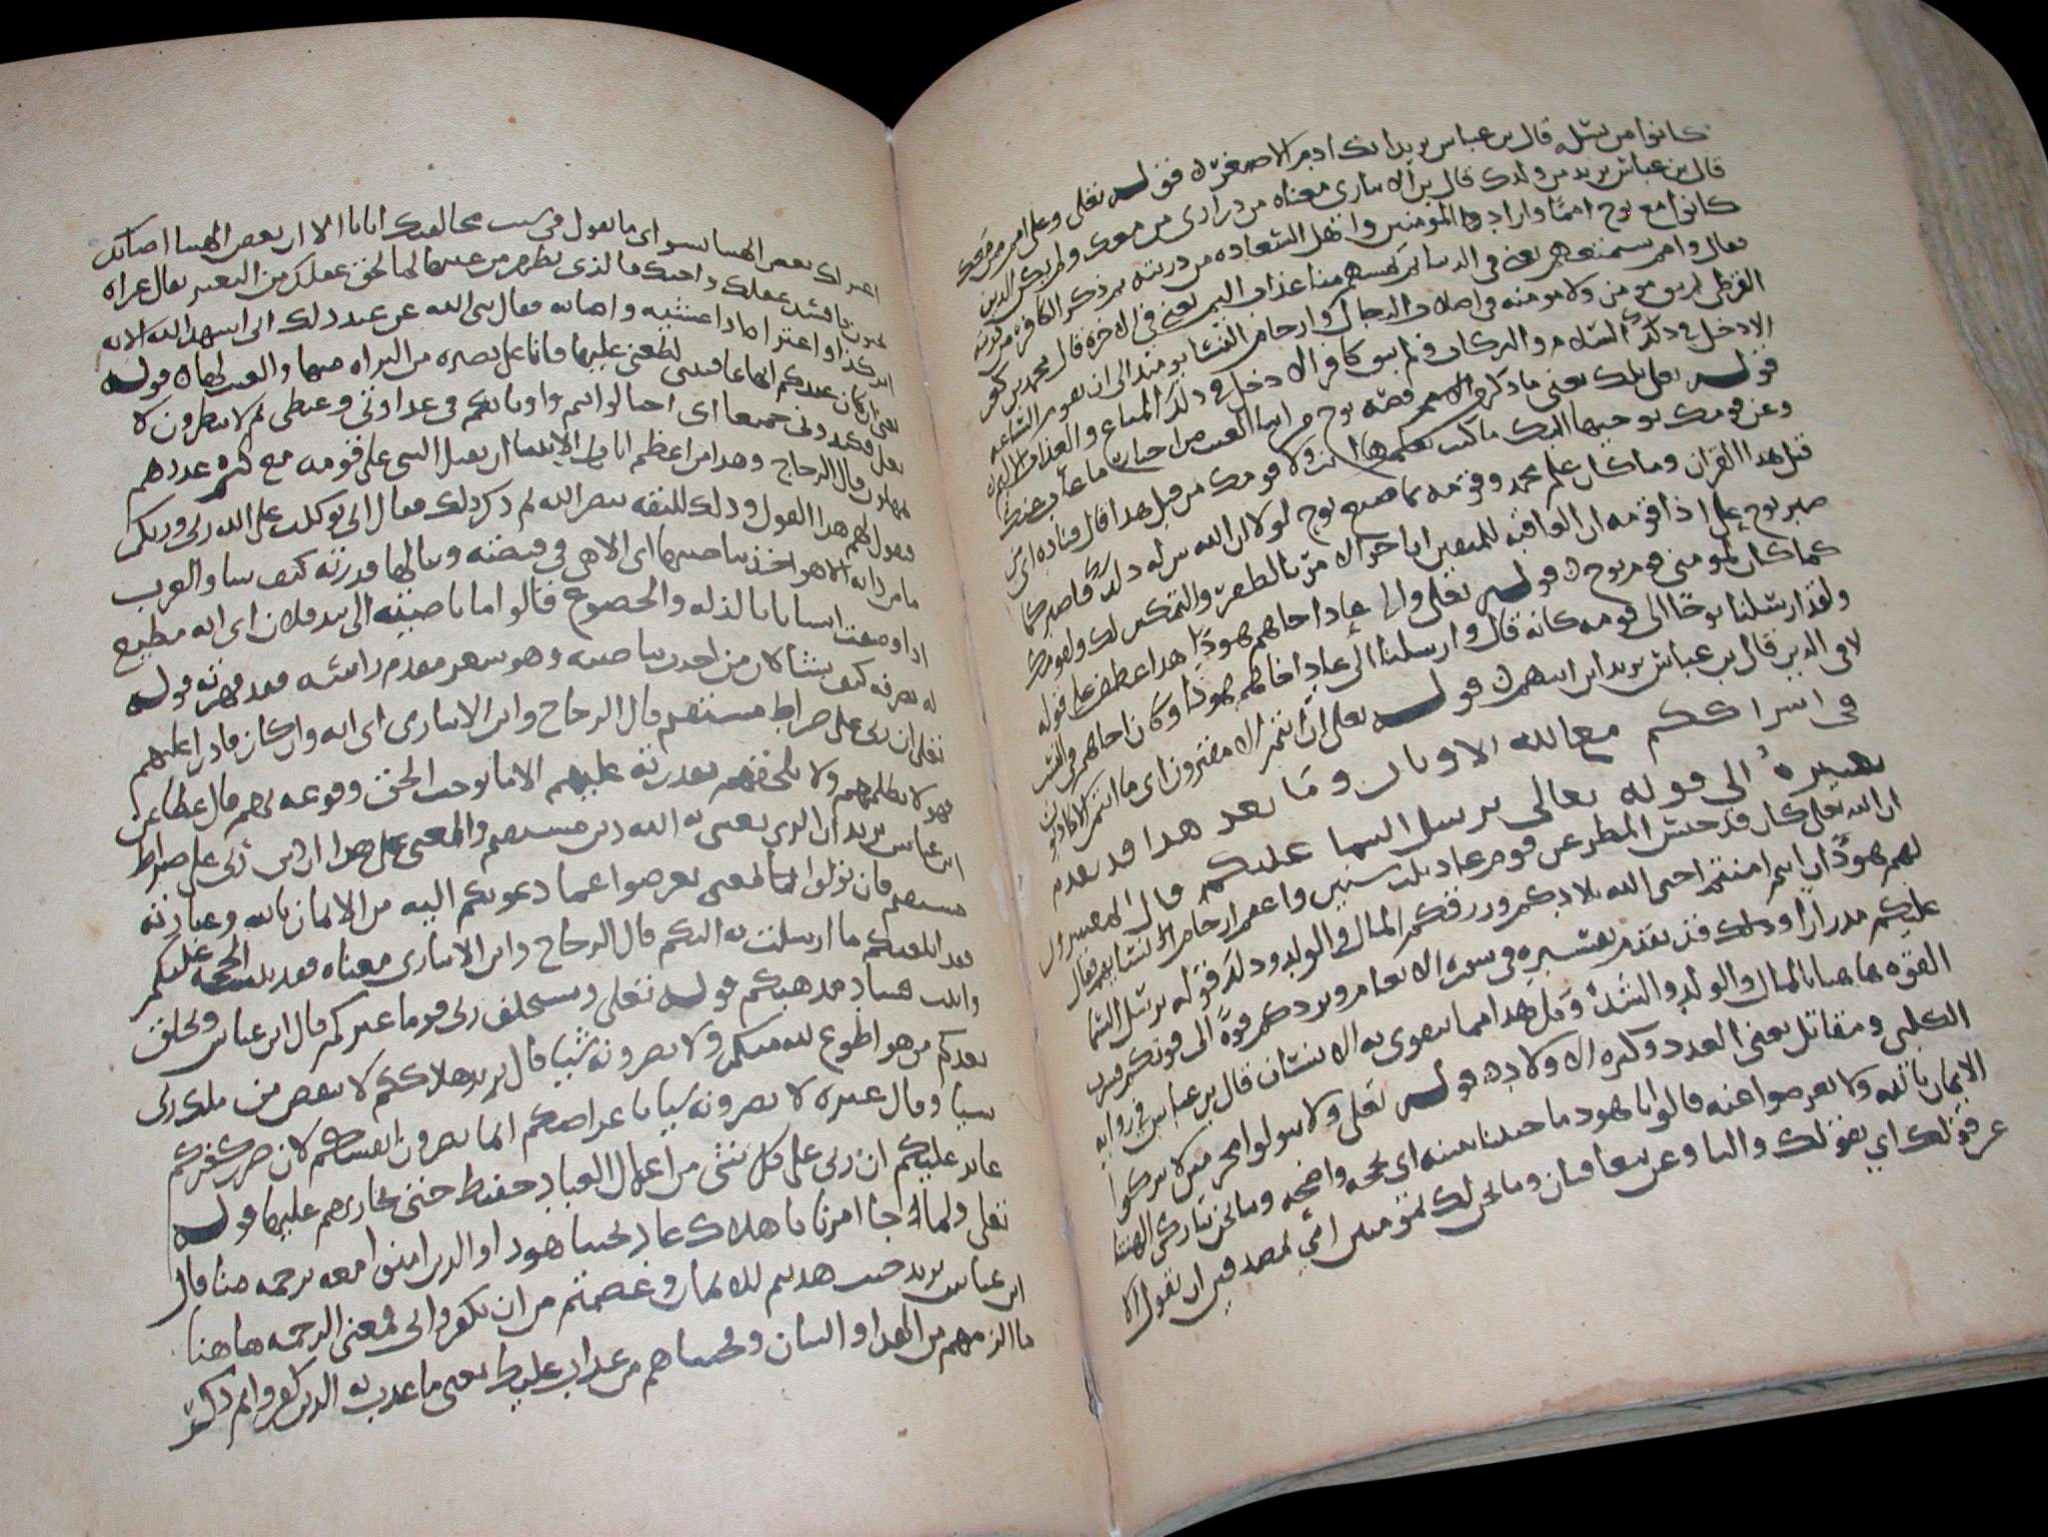 كانوا من نسله قال بن عباس يريد انك ادم الاصغر قوله تعلى وعلى امم ممن معك
قال بن عباس يريد من ولدك قال بن الانباري معناه من ذراري من معك ولم يكن الذين
كانوا مع نوح امما واراد المؤمنين واهل السعاده من ذريته ثم ذكر الكافره من ذريته
فقال وامم سنمتعهم يعني في الدنيا ثم يمسهم منا عذاب اليم يعني في الاخره قال محمد بن كعب
القرظي لم يبق مومن ولا مومنه في اصلاب الرجال وارحام النسا يومئذ الى ان تقوم الساعه
الا دخل في ذلك السلام والبركات ولم يبق كافر الا دخل في ذلك المتاع والعذاب الاليم
قوله تعلى تلك يعني ما ذكر من قصه نوح من انبا الغيب من اخبار ما غاب عنك
وعن قومك نوحيها اليك ما كنت تعلمها انت ولا قومك من قبل هذا قال قتاده اي من
قبل هذا القران وما كان علم محمد وقومه بما صنع نوح لولا ان الله بين له ذلك فاصبر كما
صبر نوح على اذا قومه ان العاقبه للمتقين اي اخر الامر بالظفر والتمكين لك ولقومك
كما كان لمومني قوم نوح قوله تعلى والى عاد اخاهم هودا هذا عطف على قوله
ولقد ارسلنا نوحا الى قومه كانه قال وارسلنا الى عاد اخاهم هودا وكان اخاهم في النسب
لا في الدين قال بن عباس يريد ابن ابيهم قوله تعلى ان انتم الا مفترون اي ما انتم الا كاذبون
في اسراككم مع الله الاوبان وما بعد هذا قد تقدم
تفسيره الى قوله تعالى يرسل السما عليكم قال المفسرون
ان الله تعلى كان قد حبس المطر عن قوم عاد ثلث سنين واعقم ارحام نسايهم فقال
لهم هود ان انتم امنتم احيى الله بلادكم ورزقكم المال والولد وذلك قوله يرسل السما
عليكم مدرارا وذلك قد تقدم تفسيره في سوره الانعام ويزدكم قوة الى قوتكم فسرت
القوه هاهنا بالمال والولد والشده وكل هذا مما يتقوى به الانسان قال بن عباس في روايه
الكلبي ومقاتل يعني العدد وكثره الاولاد قوله تعلى ولا تتولوا مجرمين لا تتركوا
الايمان بالله ولا تعرضوا عنه قالوا يا هود ما جيتنا ببينه اي بحجه واضحه وما نحن بتاركي الهتنا
عن قولك اي بقولك والبا وعن يتعاقبان وما نحن لك بمومنين اي بمصدقين ان نقول الا
اعتراك بعض الهتنا بسو اي ما نقول في سبب مخالفتك ايانا الا ان بعض الهتنا اصابك
بجنون فافسد عقلك فالذي تظهر من عيبها لما لحق عقلك من التغير يقال عراه
كذا واعتراه اذا غشيه واصابه فقال نبي الله عن عند ذلك اني اشهد الله الايه
يعني ان كان عندكم انها عاقبتني لطعني عليها فانا على بصيره من البراه منها والعيب لها قوله
تعلى فكيدوني جميعا اي احتالوا انتم واوثانكم في عداوتي وغيظي ثم لا تنظرون لا
تمهلون قال الزجاج وهذا من اعظم ايات الانبيا ان يقبل النبي على قومه مع كثره عددهم
فيقول لهم هذا القول وذلك للثقه بنصر الله ثم ذكر ذلك فقال اني توكلت على الله ربي وربكم
ما من دابه الا هو اخذ بناصيتها اي الا هي في قبضته وينالها قدرته كيف شا والعرب
اذا وصفت انسانا بالذله والخضوع قالوا ما ناصيته الا بيد فلان اي انه مطيع
له يصرفه كيف يشا لان من اخذ بناصيته وهو شعر مقدم راسه فقد قهرته قوله
تعلى ان ربي على صراط مستقيم قال الزجاج وابن الانباري اي انه وان كان قادرا عليهم
فهو لا يظلمهم ولا يلحقهم بقدرته عليهم الا ما يوجب الحق وقوعه بهم قال عطا عن
ابن عباس يريد ان الذي بعثني به الله دين مستقيم والمعنى على هذا ان دين ربي على صراط
مستقيم فان تولوا بمعنى تعرضوا عما دعوتكم اليه من الايمان بالله وعبادته
فقد ابلغتكم ما ارسلت به اليكم قال الزجاج وابن الانباري معناه فقد ثبتت الحجه عليكم
وابنت فساد مذهبكم قوله تعلى ويستخلف ربي قوما غيركم قال ابن عباس ويخلق
بعدكم من هو اطوع لله منكم ولا تضرونه شيا قال يريد هلاككم لا ينقص من ملك ربي
شيا وقال غيره لا تضرونه شيا باعراضكم انما تضرون انفسكم لان ضرر كفركم
عايد عليكم ان ربي على كل شي من اعمال العباد حفيظ حتى يجازيهم عليها قوله
تعلى ولما جا امرنا باهلاك عاد نجينا هودا والذين امنوا معه برحمه منا قال
ابن عباس يريد حيث هديتهم للايمان وعصمتهم من ان يكفروا بي فمعنى الرحمه هاهنا
ما الزمهم من الهدا والبيان ونجيناهم من عذاب غليظ يعني ما عذب به الذين كفروا ثم ذكر